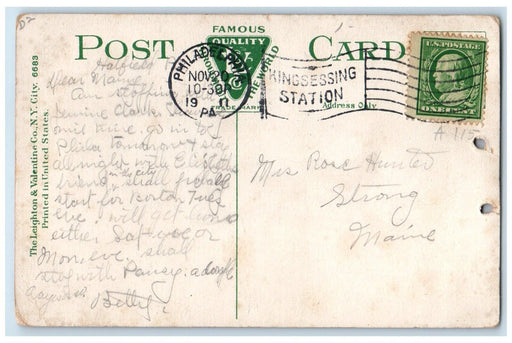 D2
FAMOUS
POST QUALITY CARD
AROUND THE WORLD
TRADE MARK
PHILADELPHIA
NOV 20
10-30P
19 11
PA.
KINGSESSING
STATION
Address Only
U.S. POSTAGE
ONE CENT
A 115
The Leighton & Valentine Co., N.Y. City. 6683
Printed in United States.
Dear
Am stopping
go in to
Phila tomorrow & stay
all night with
friend in the city shall probably
start for Boston Tues
eve. will get home
either Sat eve or
Mon. eve. shall
stop with Pansy.
Betty.
Miss Rose Hunter
Strong
Maine